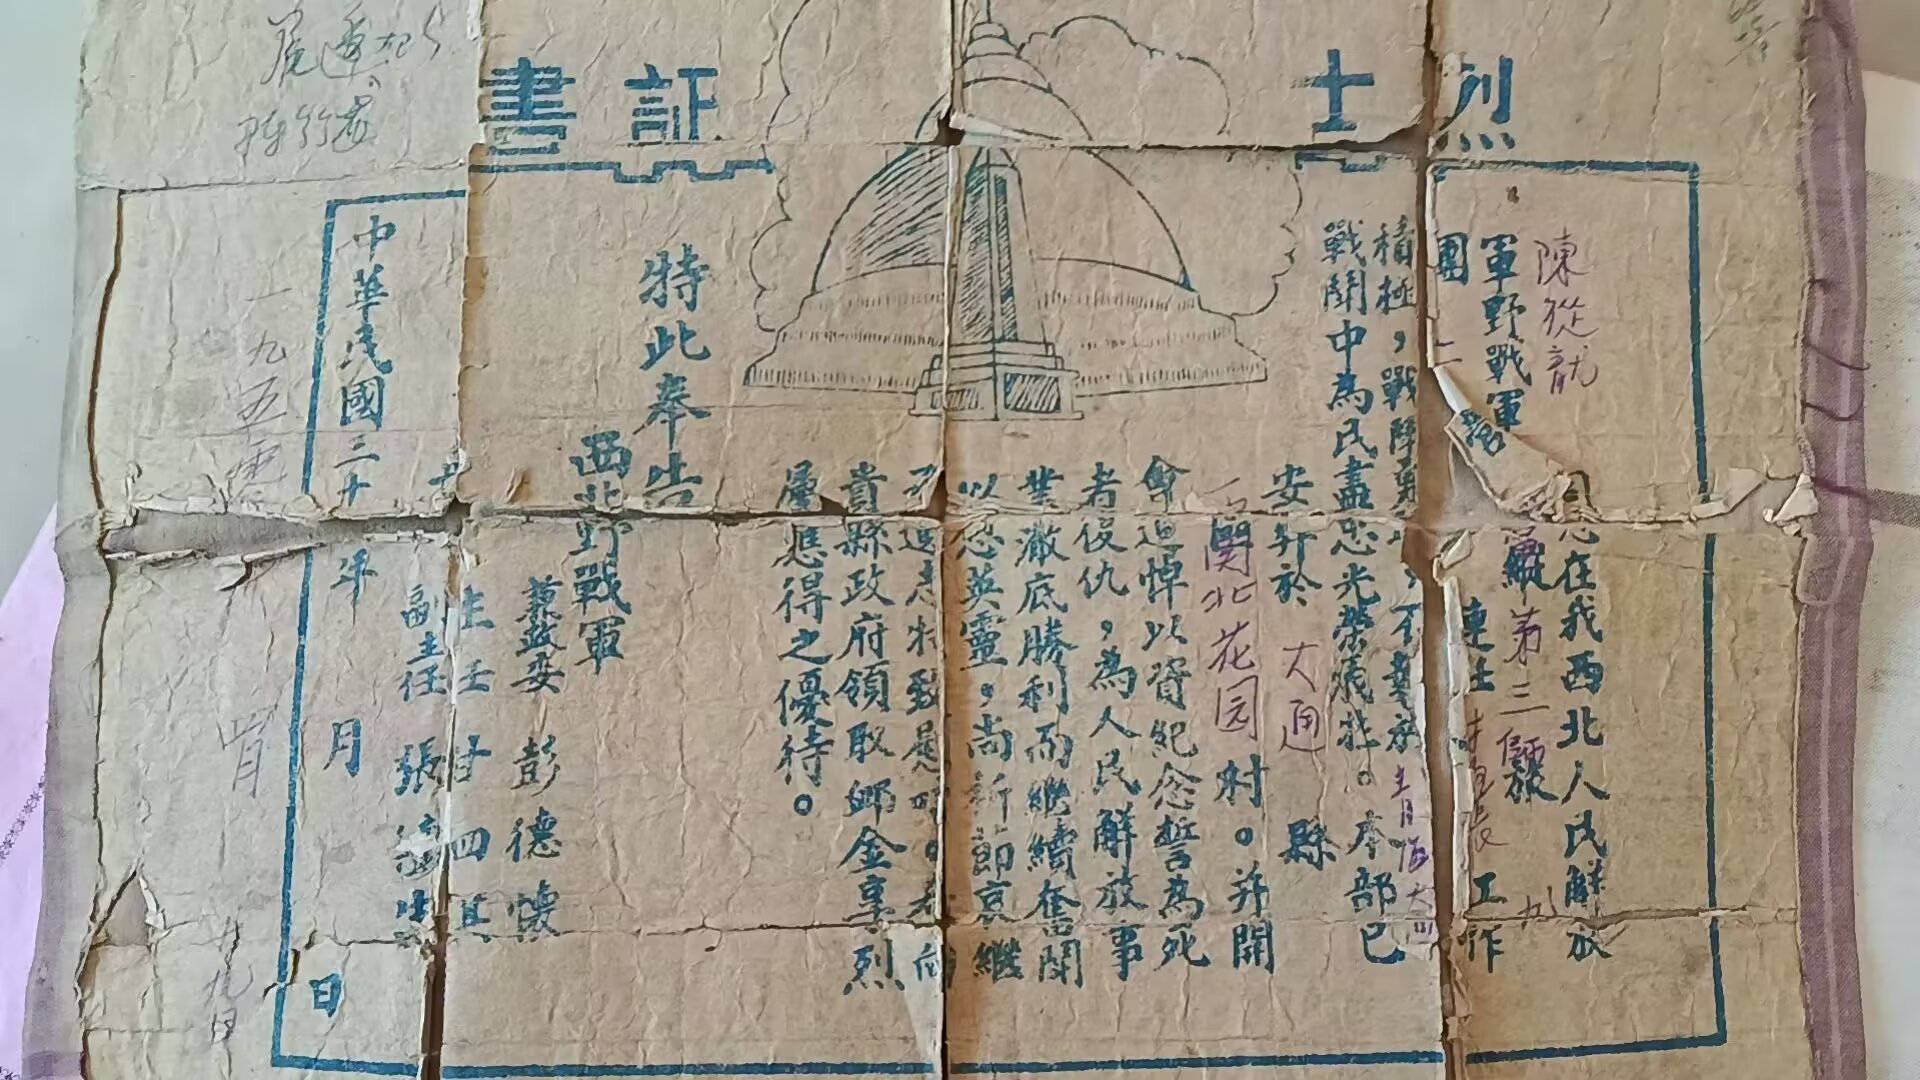 烈士証書
陳從龍
同志在我西北人民解放
軍野戰軍 縱第三師旅 九
團二營 連任 工作
積極，戰鬥勇 ，不幸於青海大
戰鬥中為民盡忠光榮犧牲。本部已
安葬於大通縣
關北花园村。并開
會追悼以資紀念誓為死
者復仇，為人民解放事
業澈底勝利而繼續奮鬥
以慰英靈，尚祈節哀繼
承遺志特致慰唁。希向
貴縣政府領取卹金享烈
屬應得之優待。
特此奉告
西北野戰軍
兼政委 彭德懷
主任 甘四其
副主任 張
中華民國三十 年 月 日
一九五零 月 九日